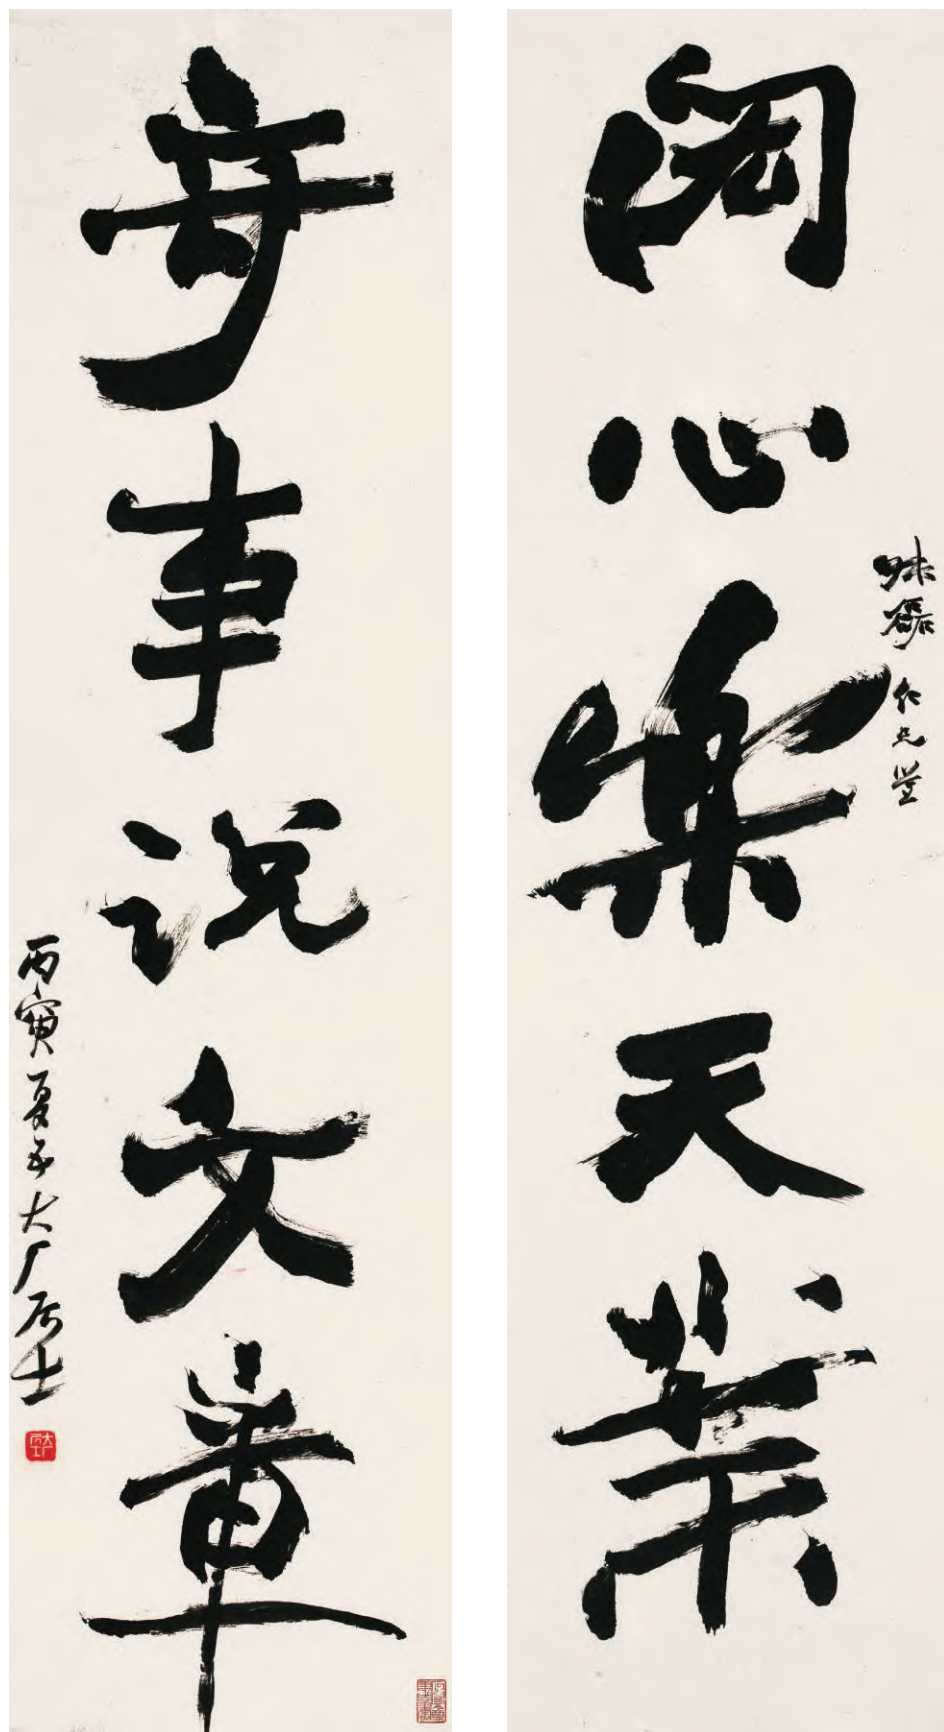 閎心樂天業
味磊仁兄鑒
竒事説文章
丙寅夏五大厂居士